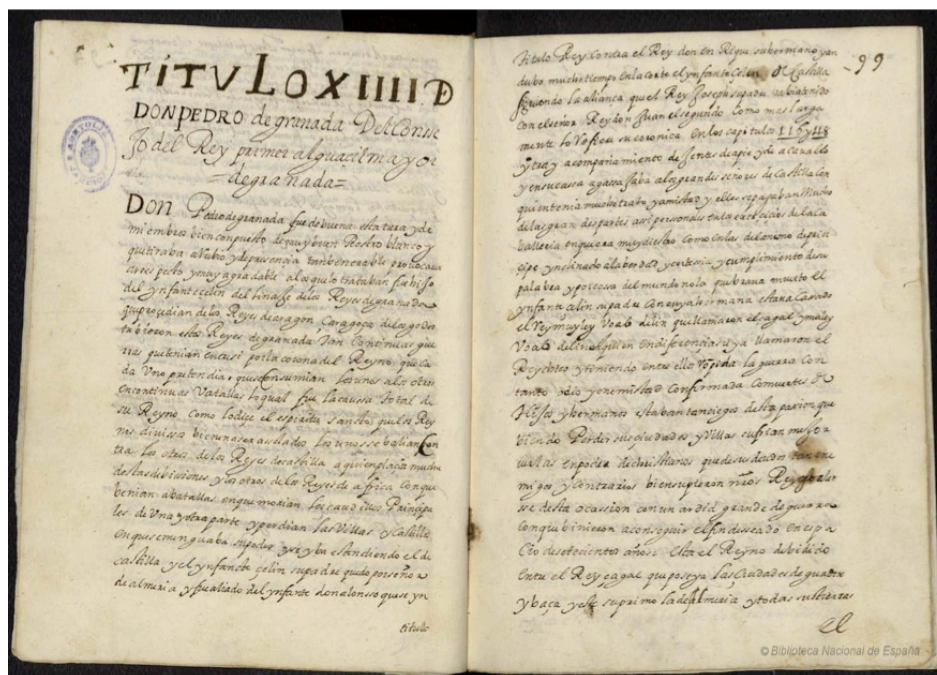 TITULO XIIII D
DON PEDRO de granada Del Conse
Jo del Rey primer alguacil mayor
=de granada=
DON Pedro de granada fue de buena estatura y de
miembros bien conpuesto de quarybun Rostro blanco y
que tiraba a Rubio y de presencia tan benerable provocava
a respecto y muy agradable a los que lo trataban fue hijo
del ynfante celin del linaxe de los Reyes de granada
que procedian de los Reyes de aragon, Caragoça de los godos
tubieron estos Reyes de granada tan Continuas gue
rras que tenian entre si por la corona del Reyno que ca
da Uno pretendia, que se Consumian los unos a los otros
en continuas Vatallas lo qual fue la caussa total de
su Reyno como lo dize el espiritu Santo que los Rey
nos divissos bienen a ser assolados los unos se balian Con
tra los otros de los Reyes de castilla a quien plaçia mucho
destas dibisiones y los otros de los Reyes de africa Con que
benian a batallas en que morian los caudillos Principa
les de Una y otra parte y perdian las Villas y Castillos
en que se menguaba su poder y se yba estendiendo el de
castilla y el ynfante çelin su padre quedo por señor
de almeria y fue aliado del ynfante don alonsso que se yn
titulo
99
titulo Rey Contra el Rey don enRique su hermano y an
dubo mucho tiempo en la Corte el ynfante Celin de Castilla
siguiendo la aliança que el Rey Joseph su padre abia tenido
con el señor Rey don Juan el segundo como mas larga
mente lo Vo su coronica en los capitulos 115 y 118
y tray a acompañamiento de Jentes de a pie y de a caballo
y en su cassa agassajaba a los grandes señores de Castilla con
quien tenia mucho trato y amistad y ellos se pagaban mucho
de las grandes partes de su persona en los exercicios de la ca
balleria en que era muy diestro Como en las de animo de prin
cipe ynclinado a la bordad y cortesia y cumplimiento de su
palabra y por cossa del mundo no la quebrara muerto el
ynfante celin su padre Con cuya hermana estava Cassado
el Rey muley Voabdelin que llamaron el çagal y muley
Voabdelin quien en diferencia suya llamaron el
Rey chico y teniendo entre ellos la guerra con
tanto odio y enemistad Confirmada Con muertes de
Hijos y hermanos estaban tan ciegos desta parion que
biendo Perder sus ciudades y Villas sufrian mejor
Verlas en poder de christianos que de sus deudos tan ene
migos y contrarios bien supieron nros Reyes baler
sse desta ocassion con un ardid grande de guerra
con que binieron a conseguir el fin desseado en espa
cio de setecientos años Esta el Reyno debidido
Entre el Rey çagal que posey a las Ciudades de guadix
y baça y este suprimo la de almeria y todas sus tierras
el
© Biblioteca Nacional de España